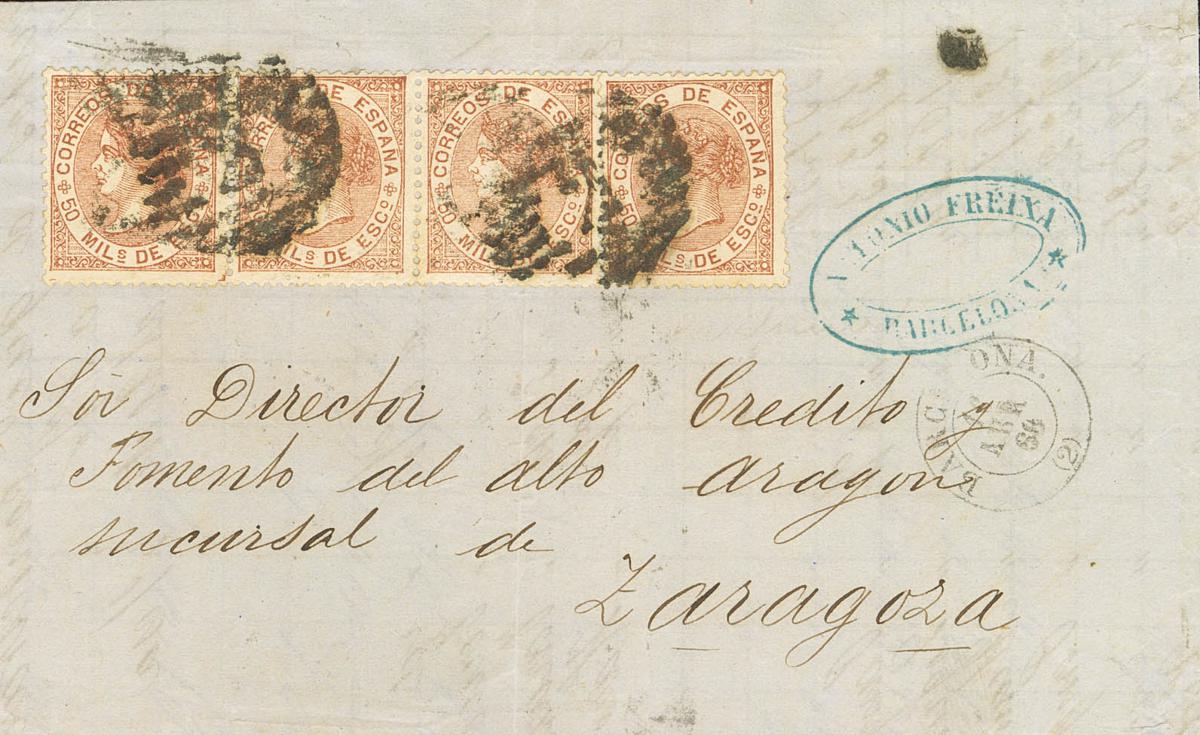 CORREOS DE ESPAÑA
50 MILS DE
DE ESPAÑA
MILS DE ESCO
CORREOS DE ESPAÑA
50 MILS DE ESCO
CORREOS DE ESPAÑA
50 MILS DE ESCO
ANTONIO FREIXA
BARCELONA
BARCELONA.
ABR
(2)
Sor Director del Credito y
Fomento del alto aragon
sucursal de
Zaragoza